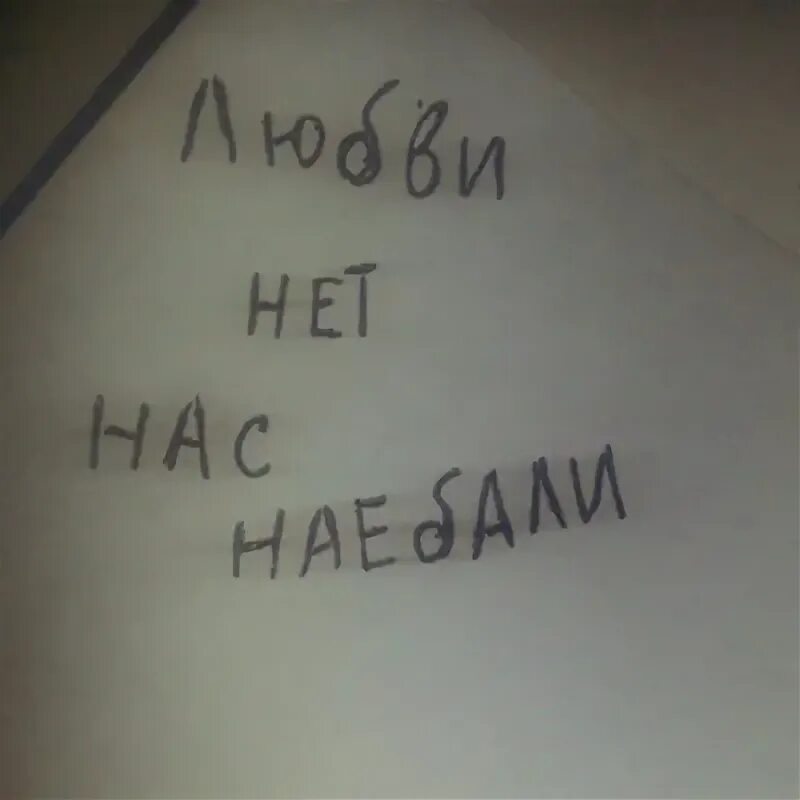 Любви
НЕТ
НАС
НАЕбАЛИ